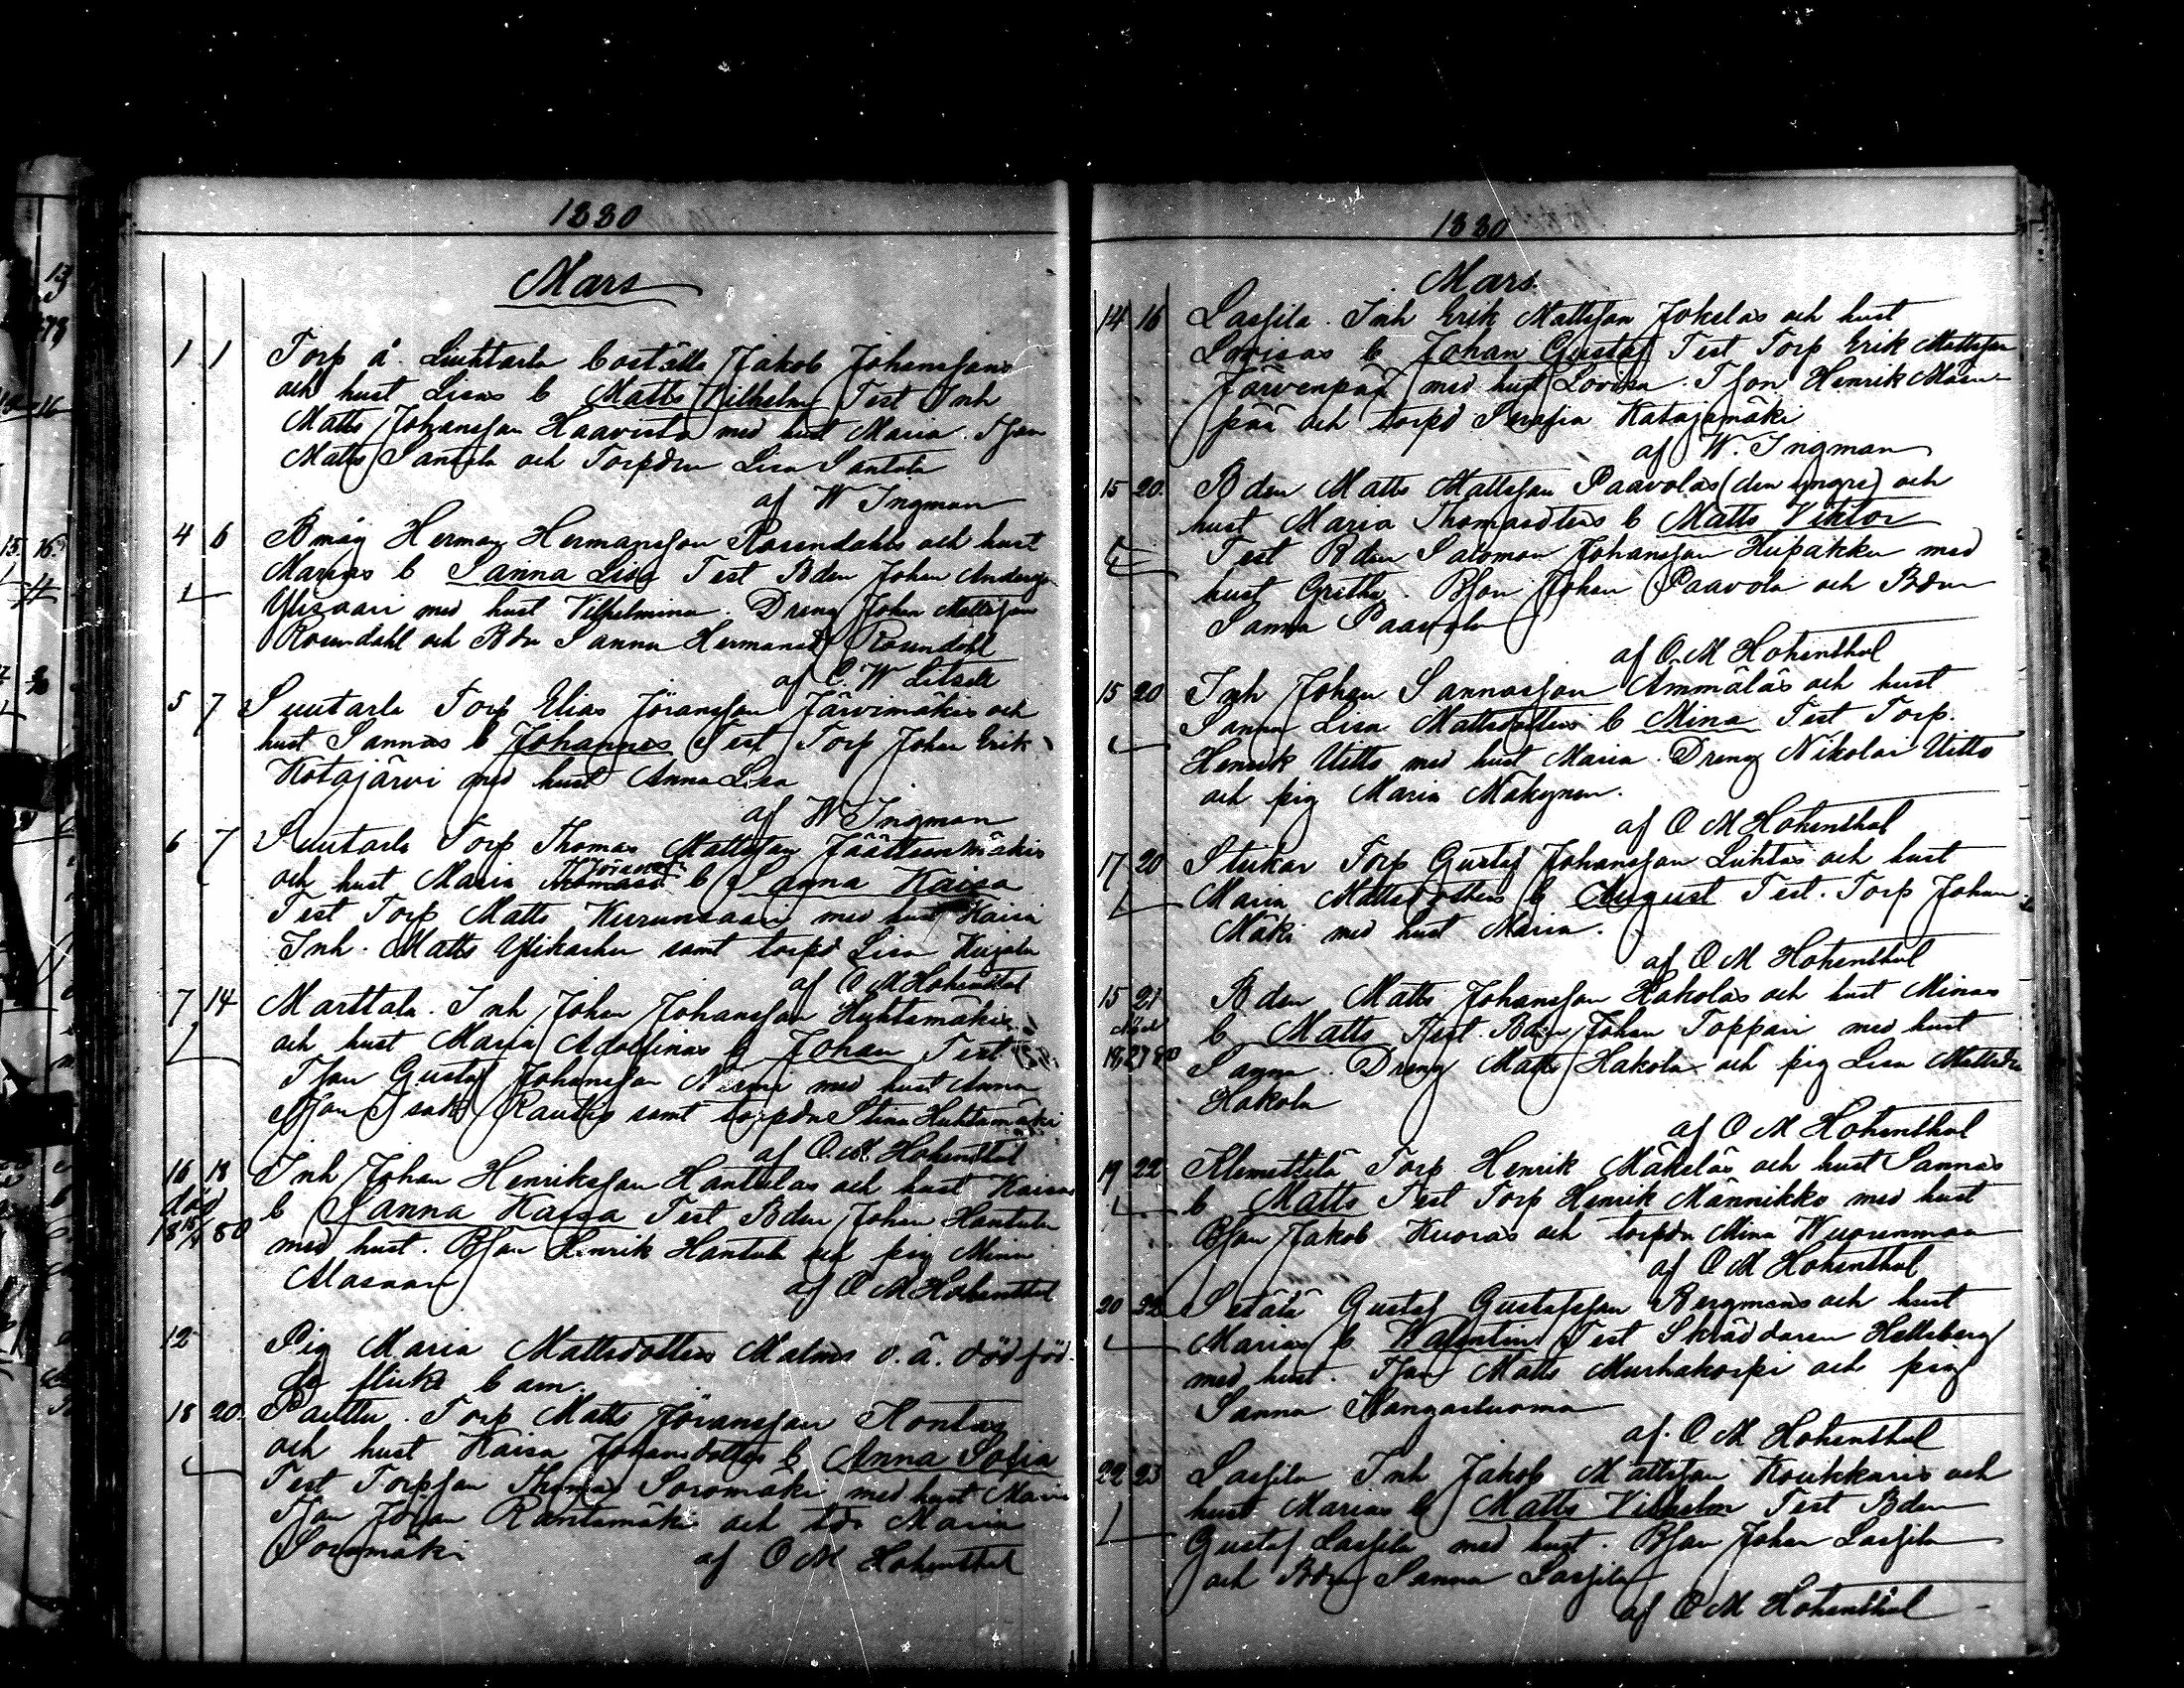 1880
Mars
1 1 Torp å Luhtarla boställe Jakob Johanssons
och hust Lisas b Matts Vilhelm Test Inh
Matts Johansson Haavisto med hust Maria. Tson
Matts Santala och Torpdrn Lisa Santala
af W Ingman
4 6 Bmåg Herman Hermansson Rosendahls och hust
Marias b Sanna Lisa Test Bden Johan Andersson
Ylisaari med hust Vilhelmina. Dreng Johan Mattsson
Rosendahl och Bdr Sanna Hermansd Rosendahl
af C. W Litzell
5 7 Suutarla Torp Elias Jöransson Järvimäkis och
hust Sannas b Johannes Test Torp Johan Erik
Kotajärvi med hust Anna Lisa
af W Ingman
6 7 Suutarla Torp Thomas Mattsson Jäättenmäkis
och hust Maria Thomasd Jöransd b Sanna Kaisa
Test Torp Matts Kurunsaari med hust Kaisa
Inh. Matts Ylikarhu samt torpd Lisa
af O M Hohenthal
7 14 Marttala. Inh Johan Johansson Huhtamäkis
och hust Maria Adolfinas b Johan Test
Tson Gustaf Johansson med hust Anna
Isak Rautio samt torpdn Stina Huhtamäki
af O. M. Hohenthal
16 18 Inh Johan Henriksson Hantulas och hust Kaisas
död b Sanna Kaisa Test Bden Johan Hantula
18 15/4 80 med hust. Bson Henrik Hantula och pig Mina
Alasaari af O M Hohenthal
12 Pig Maria Mattsdotters Malms o. ä. dödföd-
da flicke barn.
18 20. Paittu. Torp Matts Jöransson Hontas
och hust Kaisa Johansdotters b Anna Sofia
Test Torpson Thomas Soromäki med hust Maria
Tson Johan Rantamäki och tdr Maria
Soromäki af O M Hohenthal
1880
Mars
14 16 Lassila. Inh Erik Mattsson Jokelas och hust
Lovisas b Johan Gustaf Test Torp Erik Mattsson
Järvenpää med hust Lovisa. Tson Henrik Mäen-
pää och torpd Serafia Katajamäki
af W. Ingman
15 20. Bden Matts Mattsson Paavolas (den yngre) och
hust Maria Thomasdters b Matts Viktor
Test Bden Salomon Johansson Hupakka med
hust Gretha. Bson Johan Paavola och Bdrn
Sanna Paavola
af O. M Hohenthal
15 20 Inh Johan Sannasson Ämmäläs och hust
Sanna Lisa Mattsdotters b Mina Test Torp.
Henrik Uitto med hust Maria. Dreng Nikolai Uitto
och pig Maria Mäkynen.
af O M Hohenthal
17 20 Stukar Torp Gustaf Johansson Luhtas och hust
Maria Mattsdotters b August Test. Torp Johan
Mäki med hust Maria.
af O M Hohenthal
15 21 Bden Matts Johansson Hakolas och hust Minas
död b Matts Test. Bden Johan Toppari med hust
Sanna. Dreng Matts Hakola och pig Lisa Mattsdr
Hakola
af O M Hohenthal
19 22 Klemettilä Torp Henrik Mäkeläs och hust Sannas
b Matts Test Torp Henrik Männikkö med hust
Bson Jakob Kuoras och torpdn Mina Wuorenmaa
af O M Hohenthal
20 22 Setälä Gustaf Gustafsson Bergmans och hust
Marias b Valentin Test Skräddaren Hellsberg
med hust. Tson Matts Murhakorpi och pig
Sanna Kangasluoma
af. O M Hohenthal
22 23 Lassila Inh Jakob Mattsson Koukkaris och
hust Marias b Matts Vilhelm Test Bden
Gustaf Lassila med hust. Bson Johan Lassila
och Bdrn Sanna Lassila
af O M Hohenthal